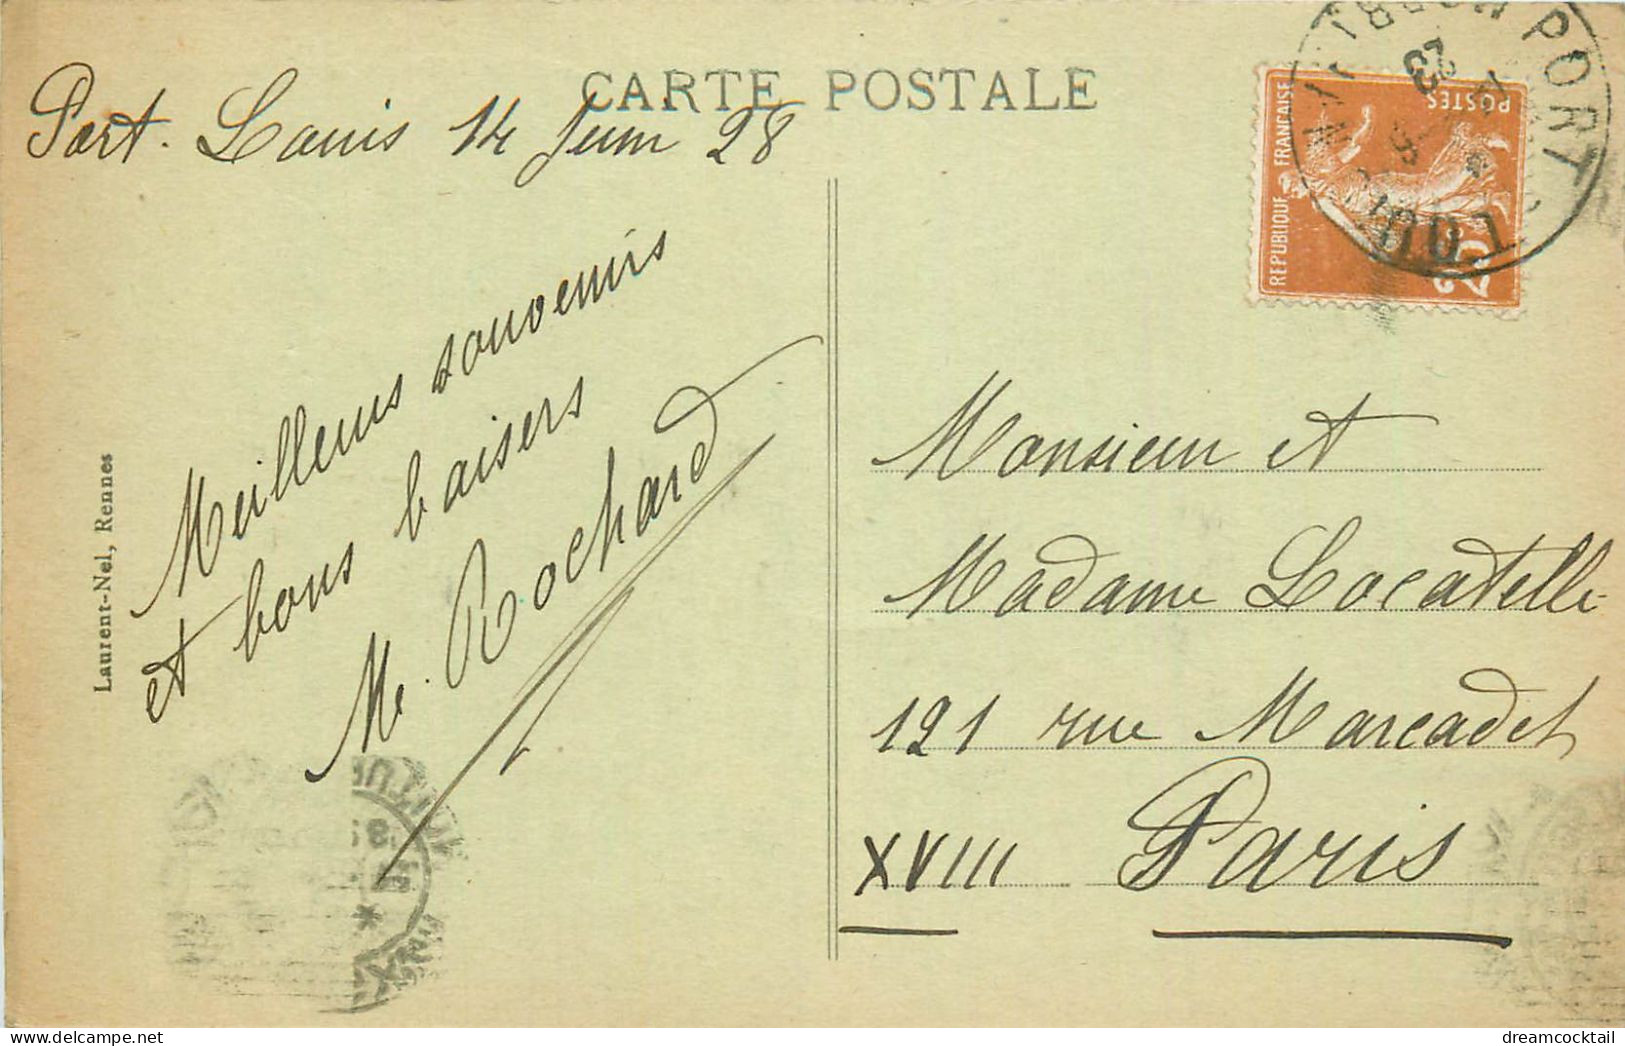 CARTE POSTALE
Port. Louis 14 Juin 28
Meilleurs souvenirs
et bons baisers
M. Rochard
Laurent-Nel, Rennes
REPUBLIQUE FRANCAISE
POSTES
20
PORT LOUIS
Monsieur et
Madame Locatelli
121 rue Marcadet
XVIII Paris
dreamcocktail
www.delcampe.net